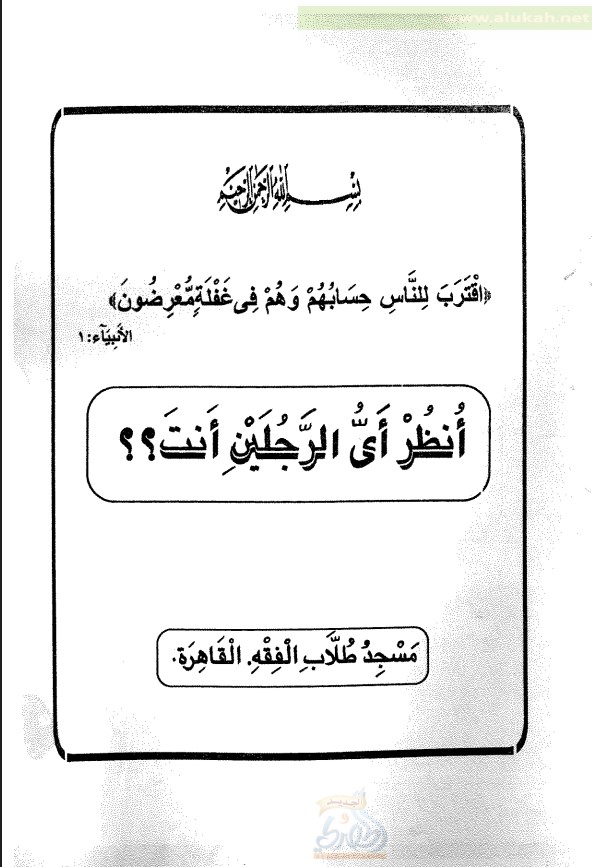 www.alukah.net
بِسْمِ اللهِ الرَّحْمَنِ الرَّحِيمِ
﴿اقْتَرَبَ لِلنَّاسِ حِسَابُهُمْ وَهُمْ فِى غَفْلَةٍ مُّعْرِضُونَ﴾
الأَنبِيَآء: ١
أُنظُرْ أَىُّ الرَّجُلَيْنِ أَنتَ؟؟
مَسْجِدُ طُلَّابِ الْفِقْهِ. الْقَاهِرَة.